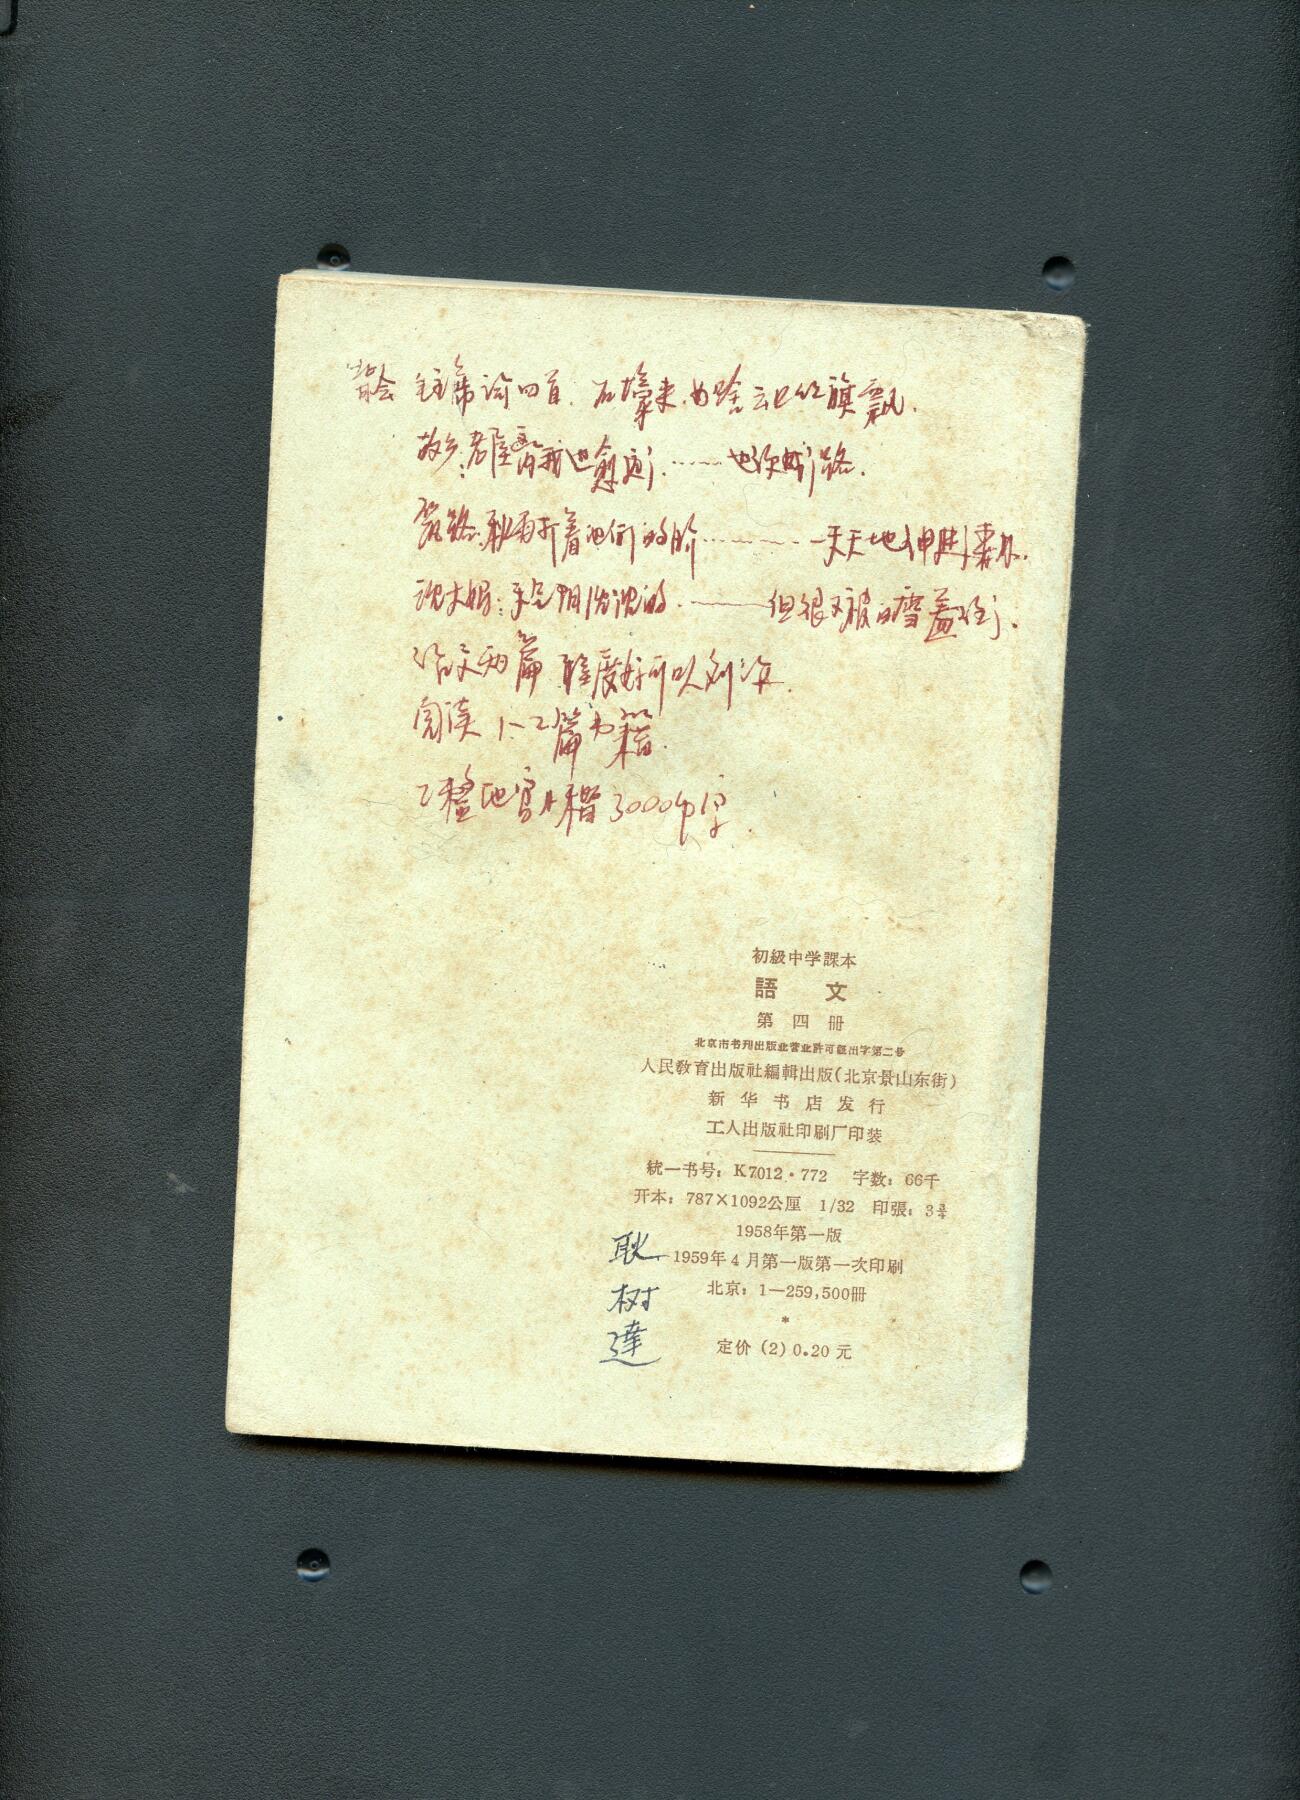 背会 主席词四首. 石壕吏. 为啥云里红旗飘.
故乡: 老屋离我愈远了. …… 也便成了路.
筑路: 秋雨打着他们的脸 …… 一天天地伸进森林.
沈大妈: 天色阴沉沉的. …… 但很又被白雪盖住了.
作文两篇
阅读 1—2篇书籍.
工整地写小楷3000个字.
初級中学課本
語 文
第 四 册
北京市书刊出版业营业許可証出字第二号
人民教育出版社編輯出版(北京景山东街)
新 华 书 店 发 行
工人出版社印刷厂印装
統一书号: K7012·772 字数: 66千
开本: 787×1092公厘 1/32 印張: 3
1958年第一版
1959年4月第一版第一次印刷
北京: 1—259,500册
*
定价 (2) 0.20 元
耿
树
達